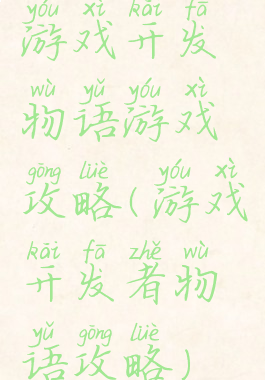 yóu xì kāi fā
游戏开发
wù yǔ yóu xì
物语游戏
gōng lüè yóu xì
攻略(游戏
kāi fā zhě wù
开发者物
yǔ gōng lüè
语攻略)